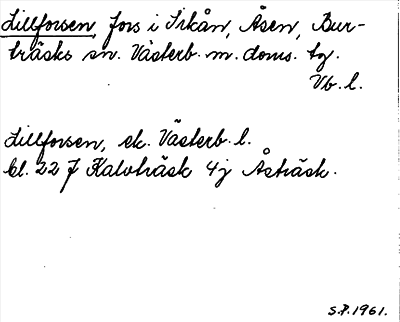 Lillforsen, fors i Sikån, Åsen, Bur-
träsks sn. Västerb. m. doms. tg.
Vb. l.
Lillforsen, ek. Västerb. l.
bl. 22 J Kalvträsk 4j Åsträsk.
S.P. 1961.